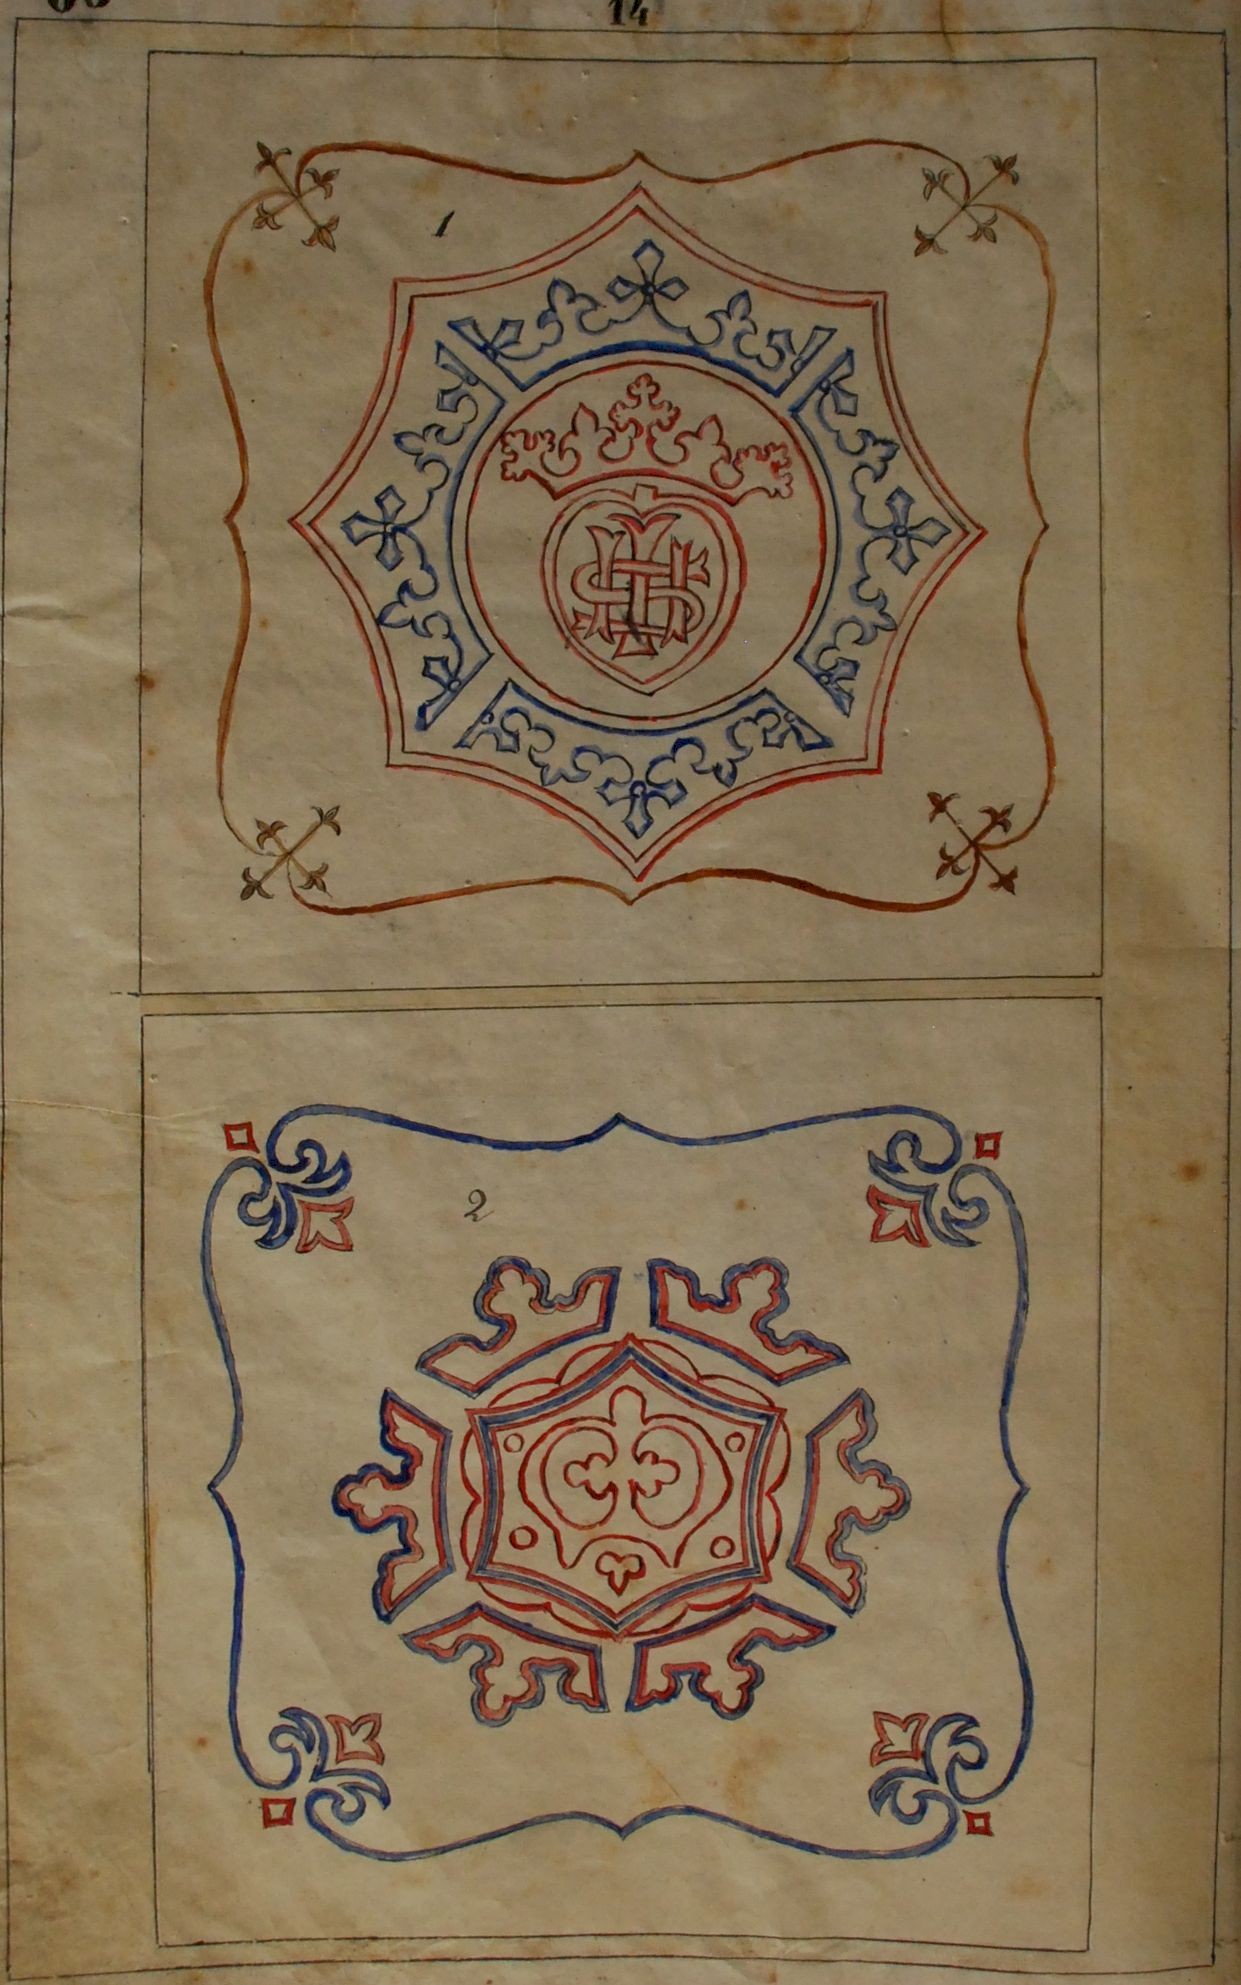 14
1
2
IHS